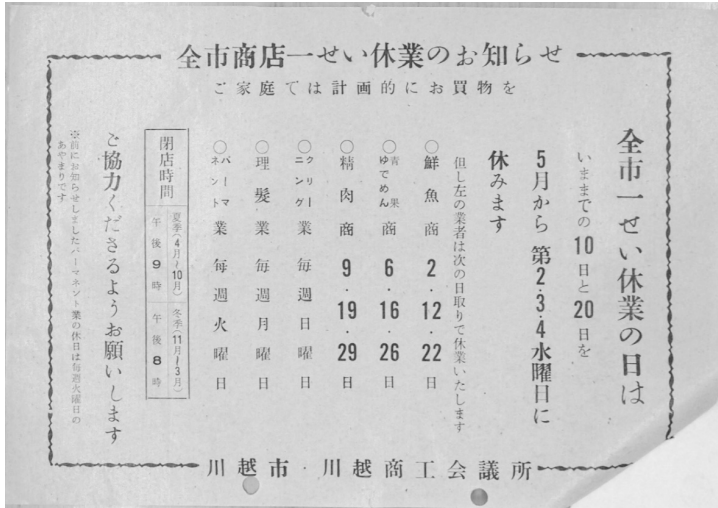 全市商店一せい休業のお知らせ
ご家庭では計画的にお買物を
全市一せい休業の日は
いままでの10日と20日を
5月から第2・3・4水曜日に
休みます
但し左の業者は次の日取りで休業いたします
○鮮魚商 2・12・22日
○青果ゆでめん商 6・16・26日
○精肉商 9・19・29日
○クリーニング業 毎週日曜日
○理髪業 毎週月曜日
○パーマネント業 毎週火曜日
閉店時間
夏季(4月~10月) 午後9時
冬季(11月~3月) 午後8時
ご協力くださるようお願いします
※前にお知らせしましたパーマネント業の休日は毎週火曜日の
あやまりです
川越市・川越商工会議所